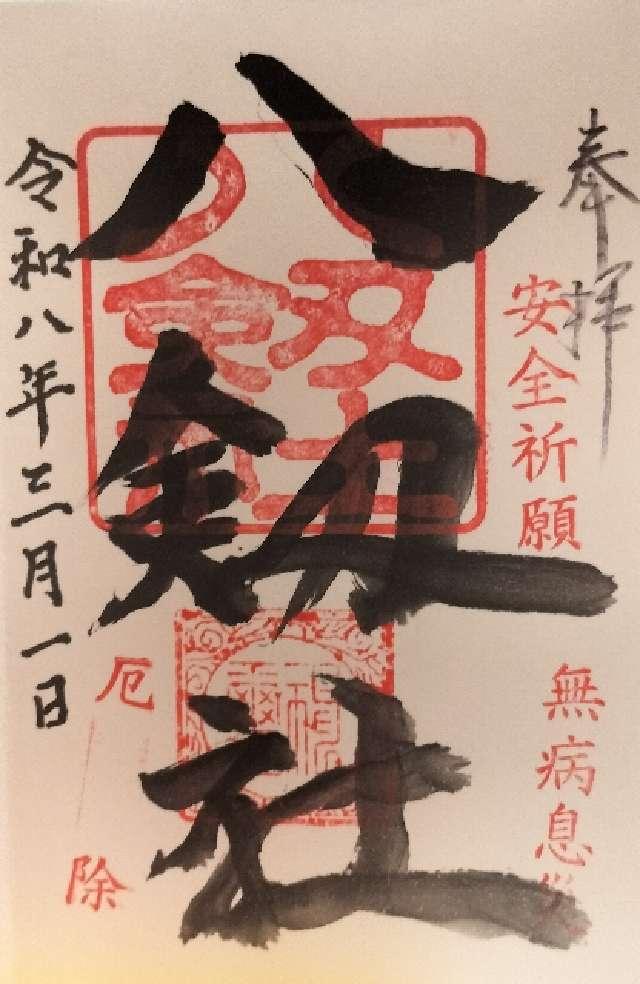 奉拝
安全祈願
無病息災
八剱社
厄除
令和八年三月一日